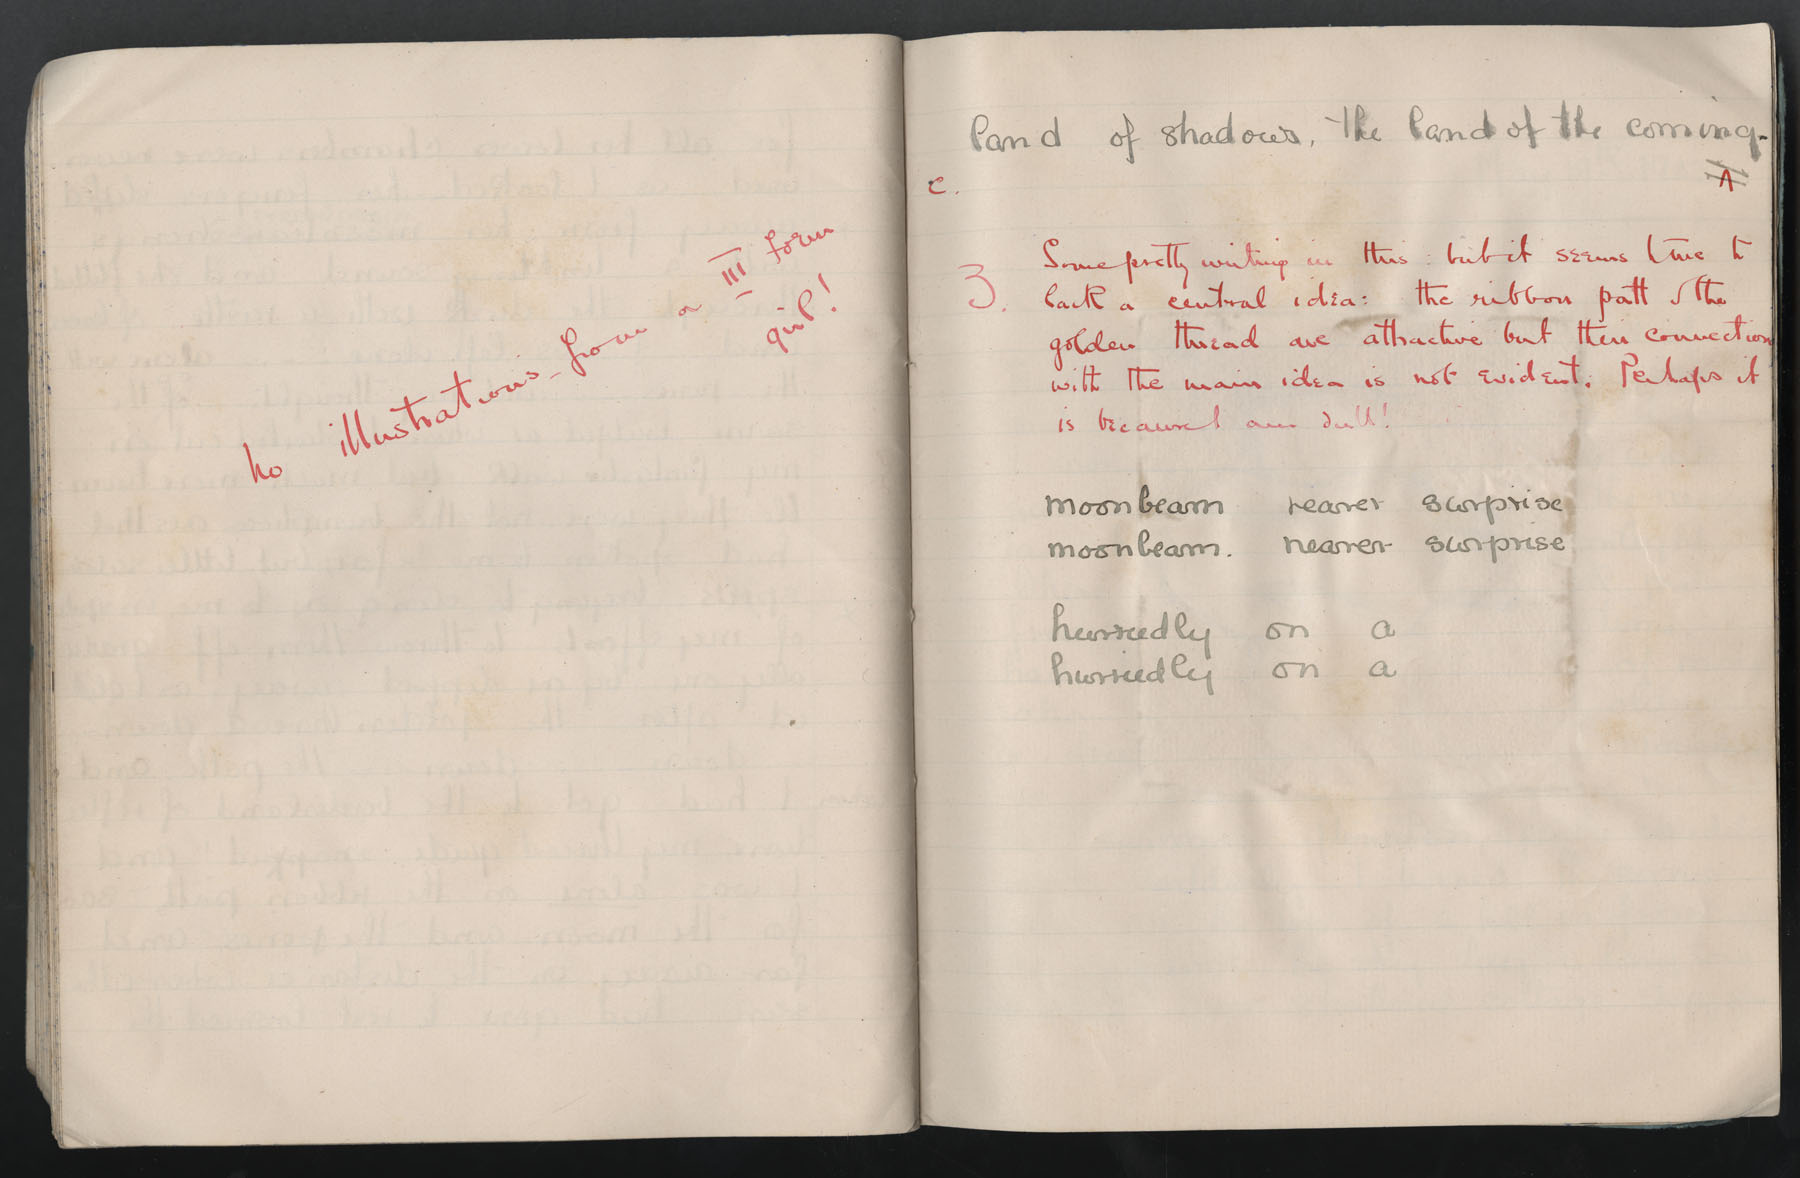 No illustrations from a III form
girl!
land of shadows, the land of the coming-
c. A
Some pretty writing in this: but it seems to me to
3. lack a central idea: the ribbon path & the
golden thread are attractive but their connection
with the main idea is not evident. Perhaps it
is because I am dull!
moonbeam nearer surprise
moonbeam. nearer surprise
hurriedly on a
hurriedly on a